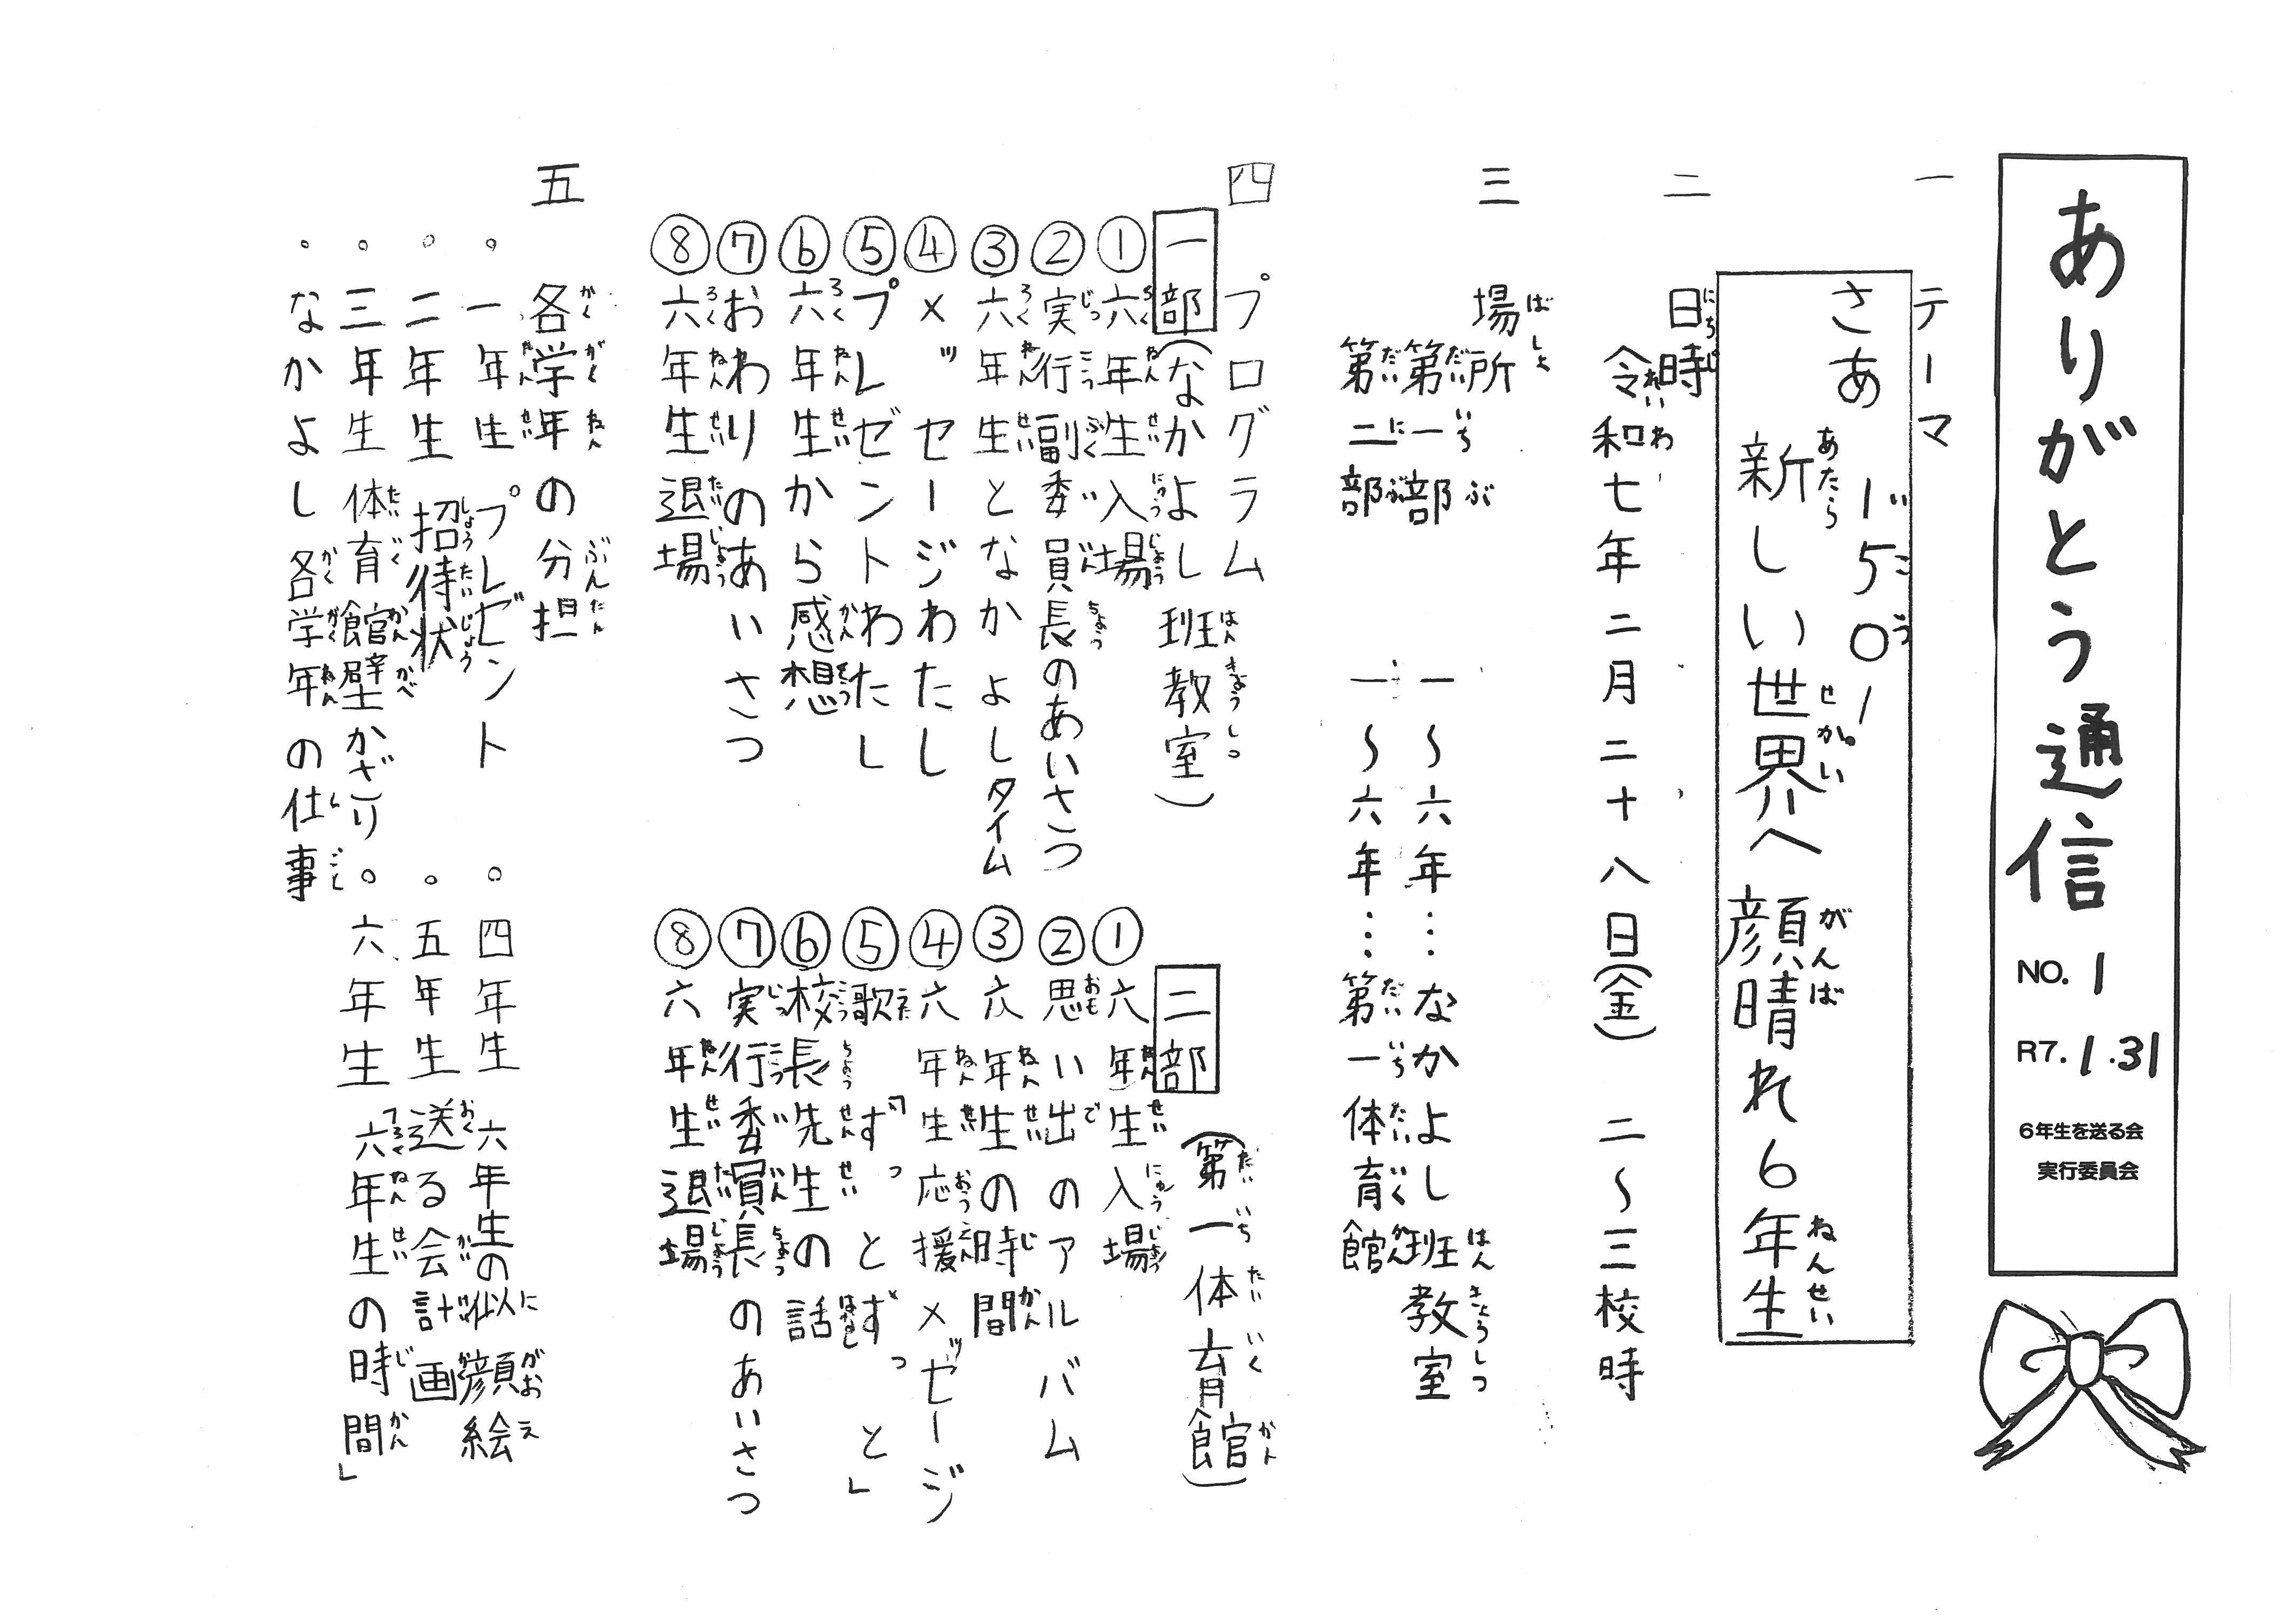 ありがとう通信
NO. 1
R7. 1.31
6年生を送る会
実行委員会
一 テーマ
さあ 150/
新しい世界へ顔晴れ6年生
二 日時
令和七年二月二十八日(金) 二〜三校時
三 場所
第一部 一〜六年…なかよし班教室
第二部 一〜六年…第一体育館
四 プログラム
一部(なかよし班教室)
①六年生入場
②実行副委員長のあいさつ
③六年生となかよしタイム
④メッセージわたし
⑤プレゼントわたし
⑥六年生から感想
⑦おわりのあいさつ
⑧六年生退場
二部(第一体育館)
①六年生入場
②思い出のアルバム
③六年生の時間
④六年生応援メッセージ
⑤歌「ずっとずっと」
⑥校長先生の話
⑦実行委員長のあいさつ
⑧六年生退場
五 各学年の分担
。一年生 プレゼント
。二年生 招待状
。三年生 体育館壁かざり
。なかよし 各学年の仕事
。四年生 六年生の似顔絵
。五年生 送る会計画
。六年生 「六年生の時間」